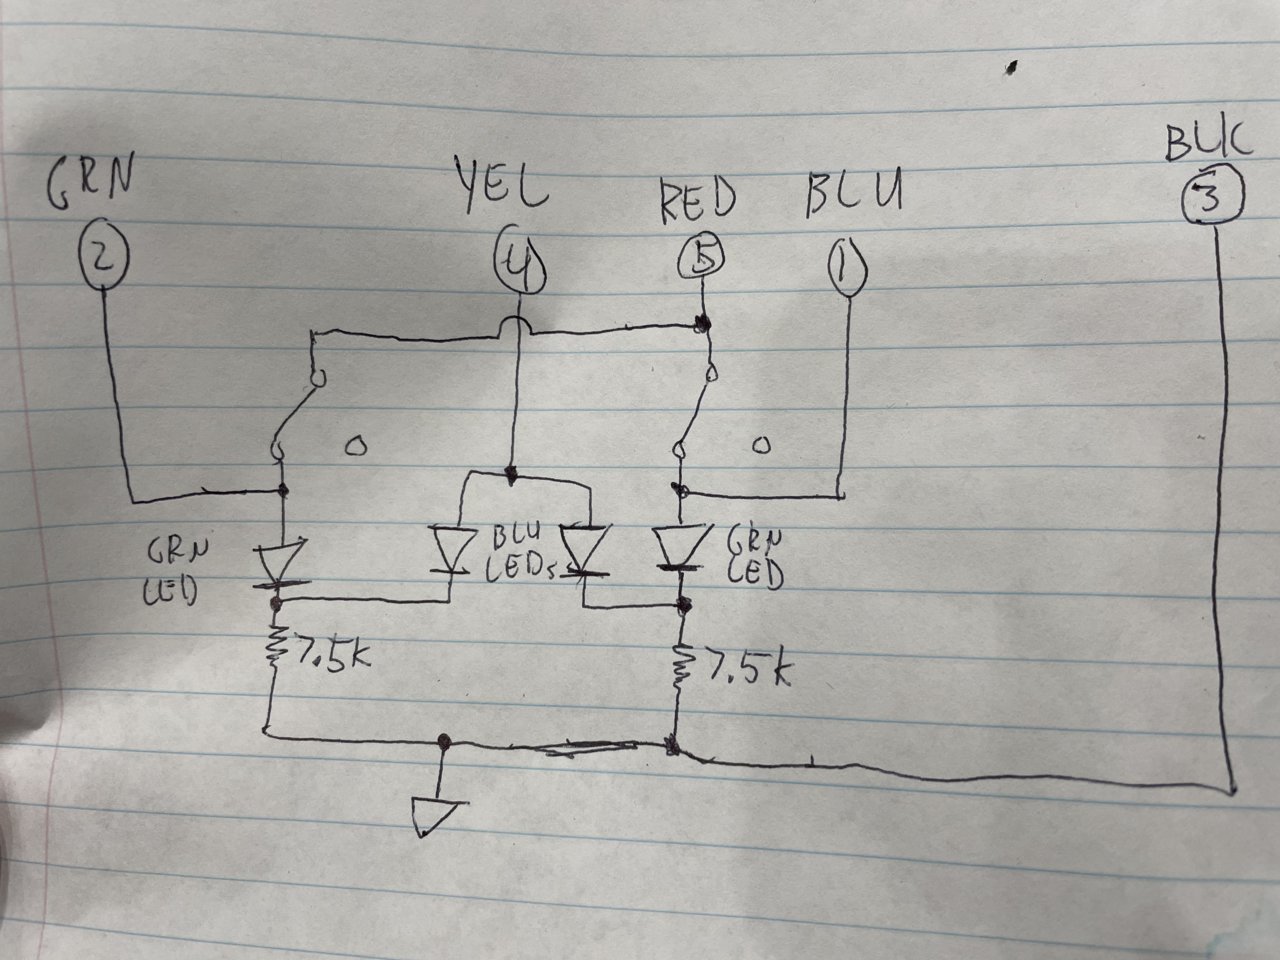 GRN
YEL
RED
BLU
BLK
2
4
5
1
3
GRN
LED
BLU
LEDs
GRN
LED
7.5k
7.5k